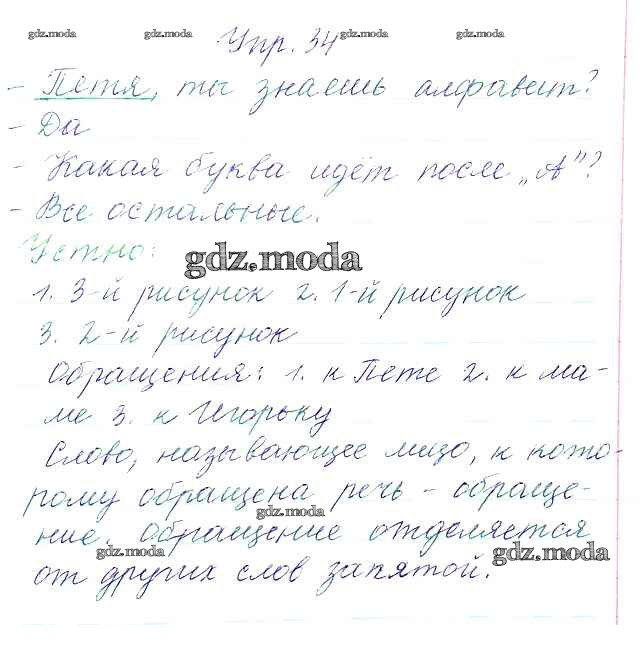 gdz.moda gdz.moda Упр. 34 gdz.moda gdz.moda
- Петя, ты знаешь алфавит?
- Да
- Какая буква идёт после „А"?
- Все остальные.
Устно: gdz.moda
1. 3-й рисунок 2. 1-й рисунок
3. 2-й рисунок
Обращения: 1. к Пете 2. к ма-
ме 3. к Игорьку
Слово, называющее лицо, к кото-
рому обращена речь - обраще-
gdz.moda
ние. Обращение отделяется
gdz.moda gdz.moda
от других слов запятой.